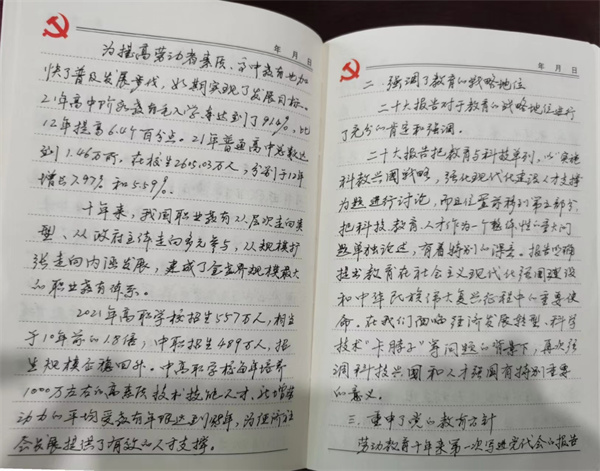 年 月 日
为提高劳动者素质、高中教育也加
快了普及发展步伐,如期实现了发展目标。
21年高中阶段教育毛入学率达到了91.4%,比
12年提高6.4个百分点。21年普通高中总数达
到1.46万所,在校生2605.03万人,分别于12年
增长7.97%和5.59%。
十年来,我国职业教育从层次走向类
型、从政府主体走向多元参与,从规模扩
张走向内涵发展,建成了全世界规模最大
的职业教育体系。
2021年高职学校招生557万人,相当
于10年前的1.8倍,中职招生489万人,招
生规模企稳回升。中高职学校每年培养
1000万左右的高素质技术技能人才,比增
动力的平均受教育年限达到 年,为经济社
会发展提供了有效的人才支撑。
年 月 日
二、强调了教育的战略地位
二十大报告对于教育的战略地位进行
了充分的肯定和强调。
二十大报告把教育与科技单列,以"实施
科教兴国战略,强化现代化建设人才支撑
为题进行讨论,而且位置前移到第五部分,
把科技、教育、人才作为一个整体性的重大问
题单独论述,有着特别的深意。报告明确
提出教育在社会主义现代化强国建设
和中华民族伟大复兴征程中的重要使
命。在我们面临经济发展转型、科学
技术"卡脖子"等问题的背景下,再次强
调科技兴国和人才强国有特别重要
的意义。
三、重申了党的教育方针
劳动教育十年来第一次写进党代会的报告